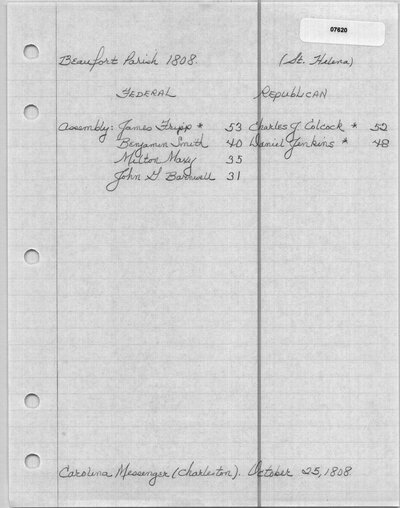 07620
Beaufort Parish 1808. (St. Helena)
FEDERAL REPUBLICAN
Assembly: James Fripp * 53 Charles J. Colcock * 52
Benjamin Smith 40 Daniel Jenkins * 48
Milton Maxy 35
John G. Barnwell 31
Carolina Messenger (Charleston). October 25, 1808.